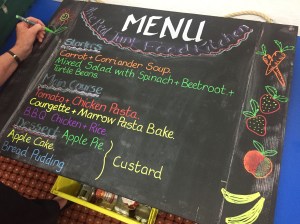 MENU
Starters
Carrot + Corriander Soup.
Mixed Salad with Spinach + Beetroot +
Turtle Beans
Main Course
Tomato + Chicken Pasta.
Courgette + Marrow Pasta Bake.
B.B.Q Chicken + Rice.
Dessert
Apple Pie
Apple Cake.
Bread Pudding.
Custard